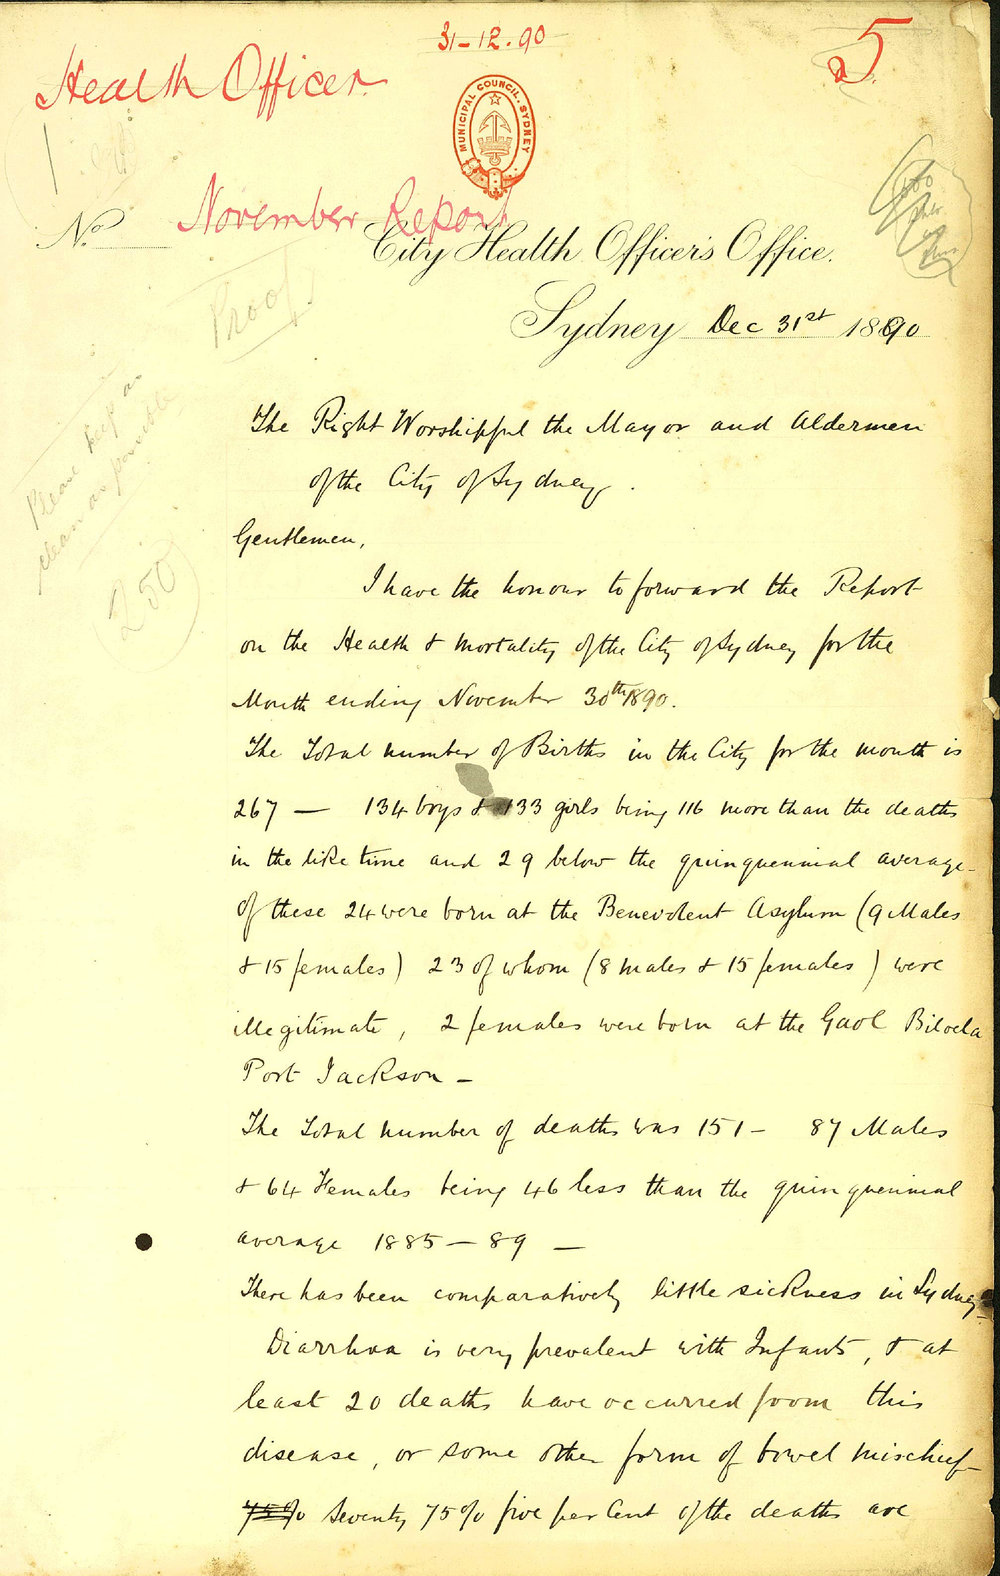 31-12-90
5
Health Officer
MUNICIPAL COUNCIL. SYDNEY
November Report
No.
City Health Officer's Office.
Proof
Sydney Dec 31st 1890
Please keep as
clean as possible
250
The Right Worshipful the Mayor and Aldermen
of the City of Sydney.
Gentlemen,
I have the honour to forward the Report
on the Health & Mortality of the City of Sydney for the
Month ending November 30th 1890.
The Total number of Births in the City for the month is
267 — 134 boys & 133 girls being 116 more than the deaths
in the like time and 29 below the quinquennial average-
of these 24 were born at the Benevolent Asylum (9 Males
& 15 females) 23 of whom (8 males & 15 females) were
illegitimate, 2 females were born at the Gaol Biloela
Port Jackson -
The Total number of deaths was 151 - 87 Males
& 64 Females being 46 less than the quinquennial
average 1885 - 89 -
There has been comparatively little sickness in Sydney-
Diarrhoa is very prevalent with Infants, & at
least 20 deaths have occurred from this
disease, or some other form of bowel mischief-
75% Seventy 75% five per Cent of the deaths are